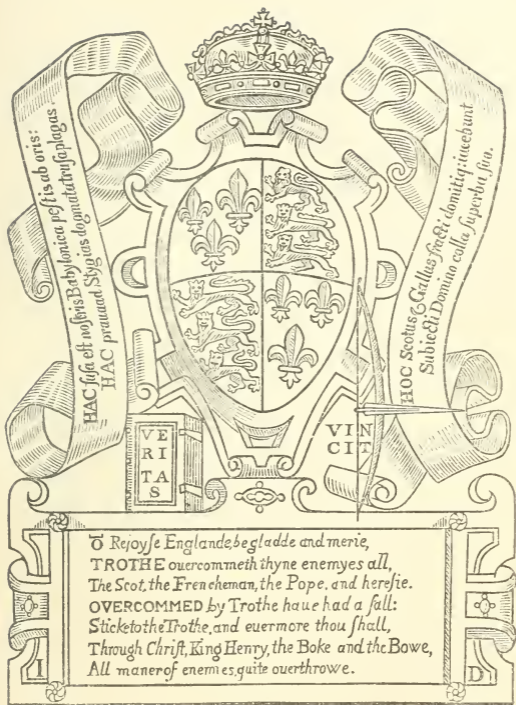 HAC fuſa eſt noſtris Babylonica peſtis ab oris:
HAC praua ad Stygias dogmata truſa plagas.
HOC Scotus & Gallus fracti domitiq; iacebunt
Subiecti Domino colla ſuperba ſuo.
VE
RI
TA
S
VIN
CIT
Ō Rejoyſe Englande, be gladde and merie,
TROTHE ouercommeth thyne enemyes all,
The Scot, the Frencheman, the Pope, and hereſie.
OVERCOMMED by Trothe haue had a fall:
Sticke to the Trothe, and euermore thou ſhall,
Through Chriſt, King Henry, the Boke and the Bowe,
All maner of enemies, quite ouerthrowe.
I D